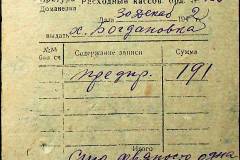 Расходный кассов. орд. №
Доманевка
Дата 30 декаб 194 2
выдать х. Богдановка
№№ Содержание записи Сумма
предпр. 191
Итого
Сто девяносто одна